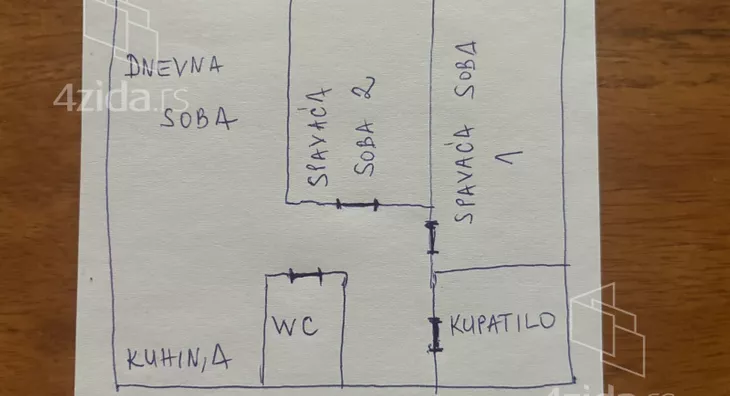 DNEVNA
SOBA
4zida.rs
SPAVAĆA
SOBA 2
SPAVAĆA SOBA
1
WC
KUPATILO
KUHINJA
4zida.rs